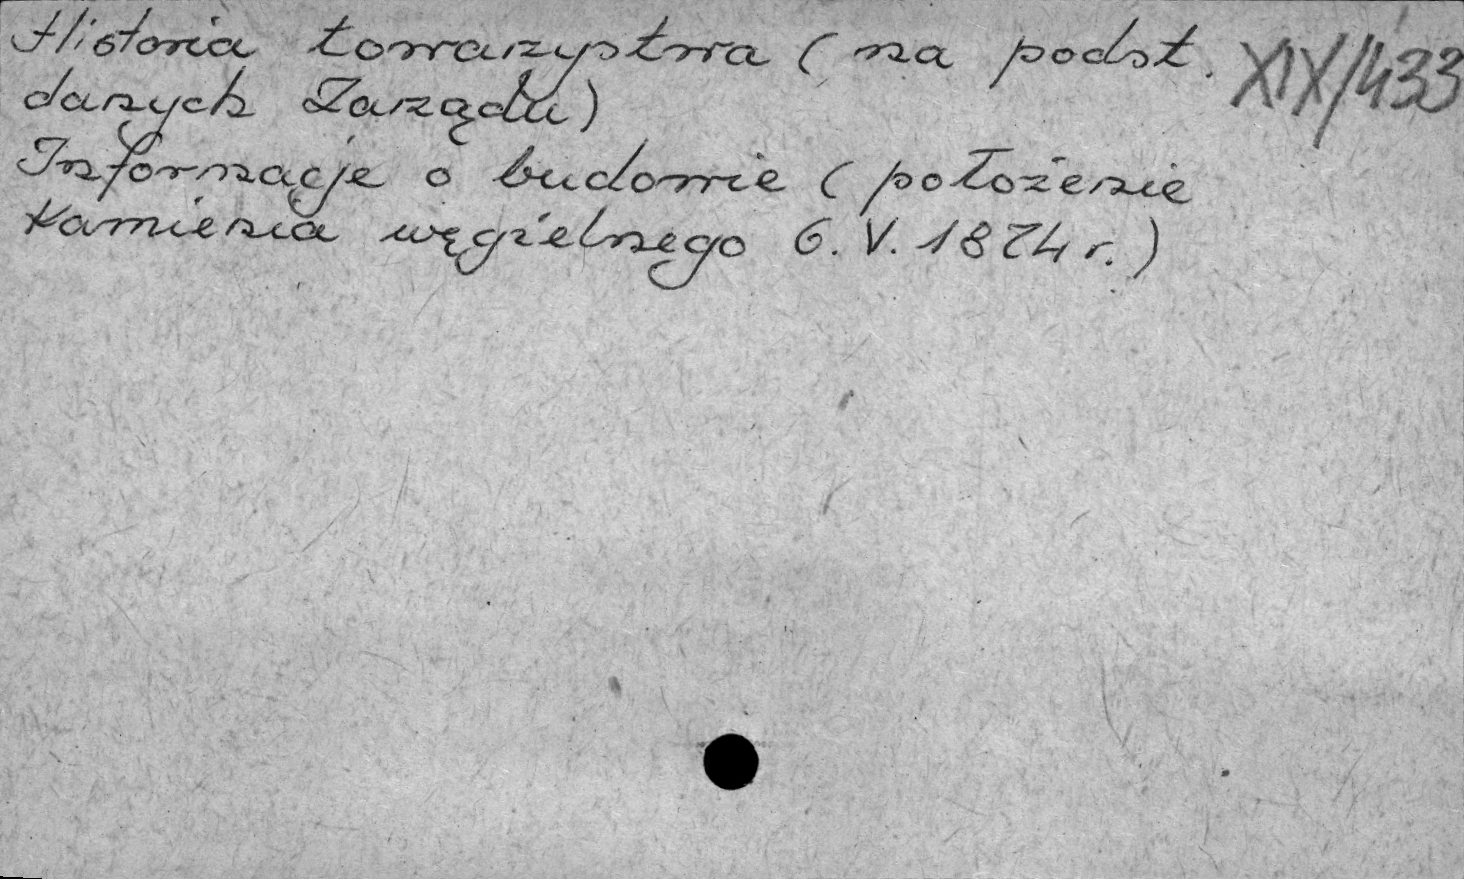 Historia towarzystwa (na podst. XIX/433
danych Zarządu)
Informacje o budowie (położenie
kamienia węgielnego 6. V. 1874 r.)